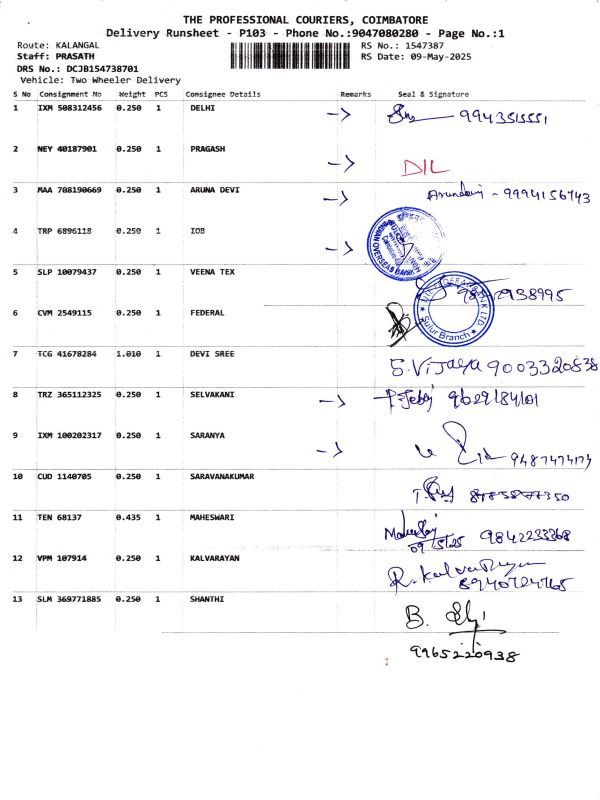 THE PROFESSIONAL COURIERS, COIMBATORE
Delivery Runsheet - P103 - Phone No.:9047080280 - Page No.:1
Route: KALANGAL RS No.: 1547387
Staff: PRASATH RS Date: 09-May-2025
DRS No.: DCJB154738701
Vehicle: Two Wheeler Delivery
S No Consignment No Weight PCS Consignee Details Remarks Seal & Signature
1 IXM 508312456 0.250 1 DELHI -> 9943515551
2 NEY 40187901 0.250 1 PRAGASH -> DIL
3 MAA 708190669 0.250 1 ARUNA DEVI -> Arundevi - 9994156743
4 TRP 6896118 0.250 1 IOB -> INDIAN OVERSEAS BANK
5 SLP 10079437 0.250 1 VEENA TEX
6 CVM 2549115 0.250 1 FEDERAL Sulur Branch
7 TCG 41678284 1.010 1 DEVI SREE S. Vijaya 9003320838
8 TRZ 365112325 0.250 1 SELVAKANI -> 9629184101
9 IXM 100202317 0.250 1 SARANYA -> 9487474174
10 CUD 1140705 0.250 1 SARAVANAKUMAR
11 TEN 68137 0.435 1 MAHESWARI 9842233368
12 VPM 107914 0.250 1 KALVARAYAN R. Kalvarayan
8940724765
13 SLM 369771885 0.250 1 SHANTHI B.
9965220938